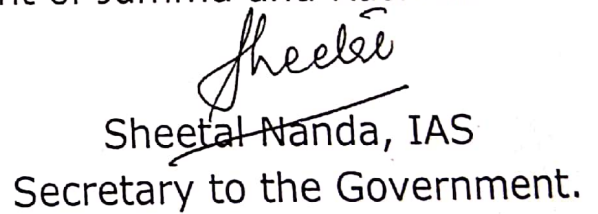 Sheetal
Sheetal Nanda, IAS
Secretary to the Government.